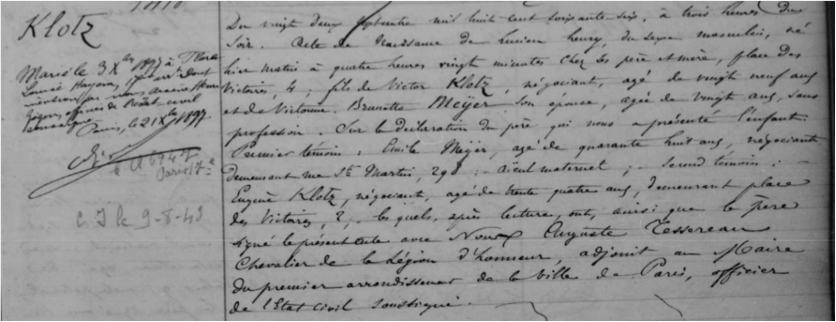 Klotz
Marié le 3 Xbre 1897 à
Paris, le 21 Xbre 1897.
Du vingt deux septembre mil huit cent soixante six, à trois heures du
soir. Acte de Naissance de Lucien Henry, du sexe masculin, né
hier matin à quatre heures vingt minutes chez ses père et mère, place des
Victoires, 4; fils de Victor Klotz, négociant, agé de vingt neuf ans
et de Victorine Brunette Meÿer son épouse, agée de vingt ans, sans
profession. Sur la déclaration du père, qui nous a présenté l'enfant
Premier témoin: Emile Meÿer, agé de quarante huit ans, négociant
demeurant rue St Martin, 298 aïeul maternel; Second témoin:
Eugène Klotz, négociant, agé de trente quatre ans, demeurant place
des Victoires, 2, lesquels, après lecture, ont, ainsi que le père
signé le présent acte avec Nous Auguste Tessereau
Chevalier de la Légion d'honneur, adjoint au Maire
du premier arrondissement de la Ville de Paris, officier
de l'Etat Civil soussigné.